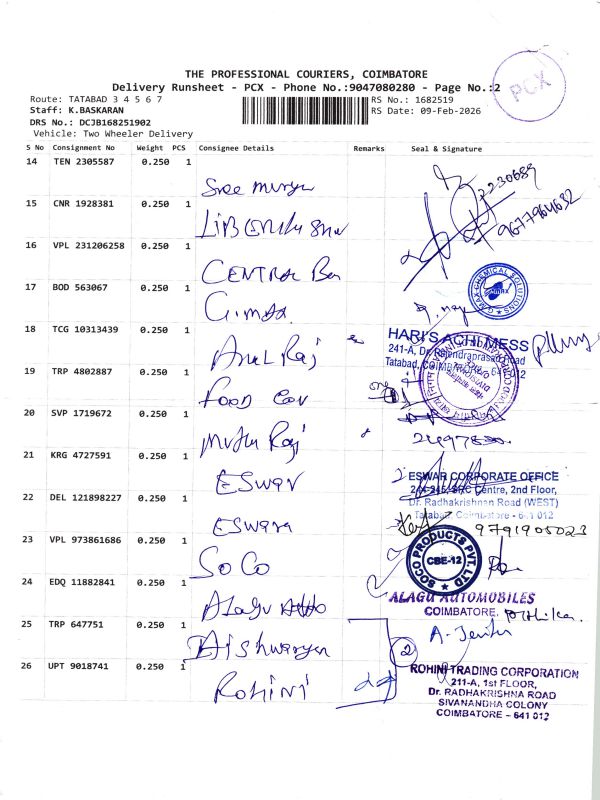 THE PROFESSIONAL COURIERS, COIMBATORE
Delivery Runsheet - PCX - Phone No.:9047080280 - Page No.:2
PCX
Route: TATABAD 3 4 5 6 7
RS No.: 1682519
Staff: K.BASKARAN
RS Date: 09-Feb-2026
DRS No.: DCJB168251902
Vehicle: Two Wheeler Delivery
S No Consignment No Weight PCS Consignee Details Remarks Seal & Signature
14 TEN 2305587 0.250 1
Sree Murugan
15 CNR 1928381 0.250 1
9677964632
16 VPL 231206258 0.250 1
CENTRAL Ban
17 BOD 563067 0.250 1
G.max
GMAX CHEMICAL SOLUTIONS
18 TCG 10313439 0.250 1
Arul Raj
HARI'S ACHI MESS
241-A, Dr. Rajendraprasad Road
Tatabad, COIMBATORE - 641 012
19 TRP 4802887 0.250 1
FOOD Cor
20 SVP 1719672 0.250 1
Muthu Raj
21 KRG 4727591 0.250 1
ESWAR
ESWAR CORPORATE OFFICE
Centre, 2nd Floor,
Dr. Radhakrishnan Road (WEST)
Tatabad Coimbatore - 641 012
22 DEL 121898227 0.250 1
ESwara
9791905023
23 VPL 973861686 0.250 1
So Co
SOCO PRODUCTS PVT. LTD
CBE-12
24 EDQ 11882841 0.250 1
Alagu Auto
ALAGU AUTOMOBILES
COIMBATORE.
25 TRP 647751 0.250 1
Aishwarya
A. Jenifer
2
26 UPT 9018741 0.250 1
Rohini
ROHINI TRADING CORPORATION
211-A, 1st FLOOR,
Dr. RADHAKRISHNA ROAD
SIVANANDHA COLONY
COIMBATORE - 641 012